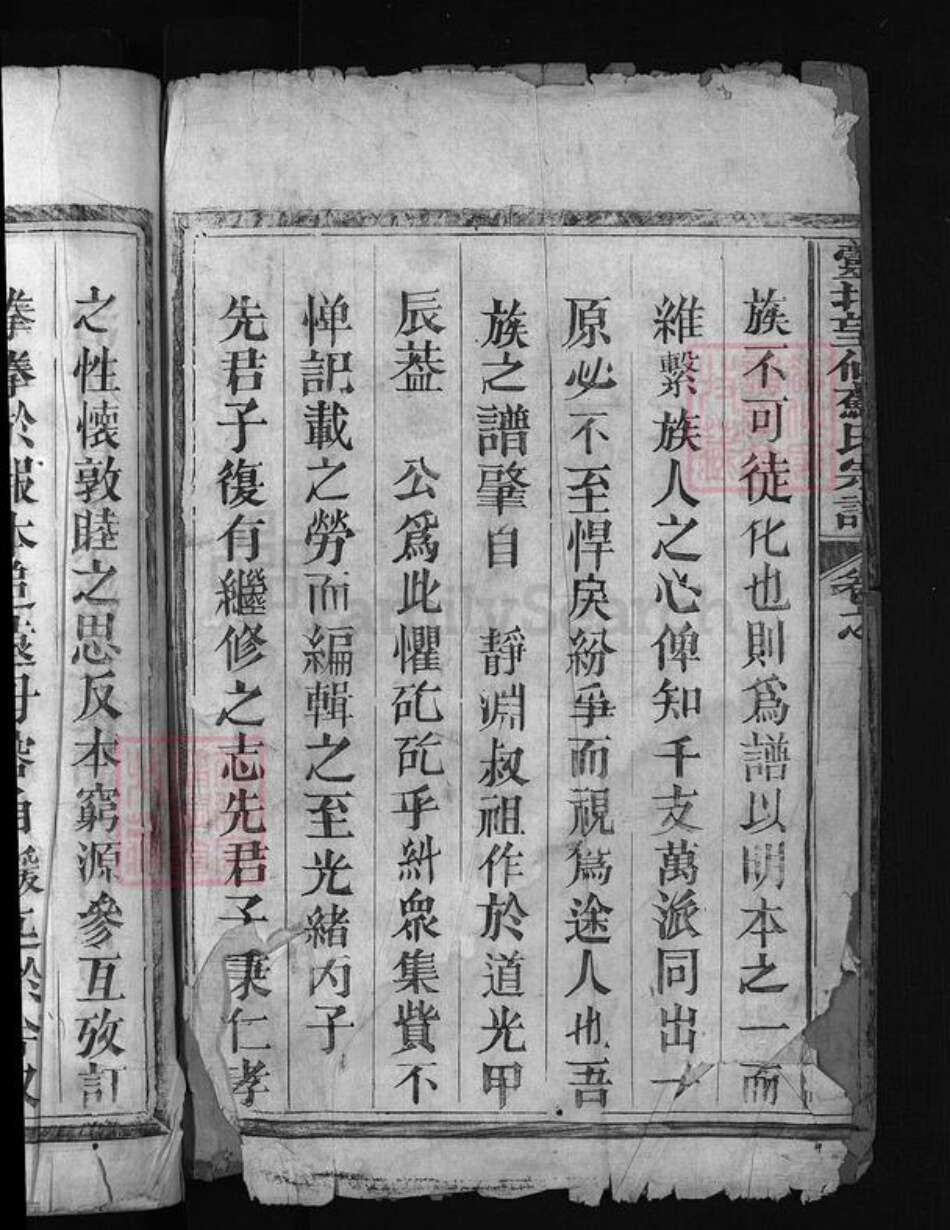 族不可徒化也則爲譜以明本之一而
維繫族人之心俾知千支萬派同出一
原必不至悍戾紛爭而視爲途人也吾
族之譜肇自 靜淵叔祖作於道光甲
辰葢 公爲此懼矻矻乎糾眾集貲不
惮記載之勞而編輯之至光緒丙子
先君子復有繼修之志先君子秉仁孝
之性懷敦睦之思反本窮源參互攷訂
拳拳於報本追遠